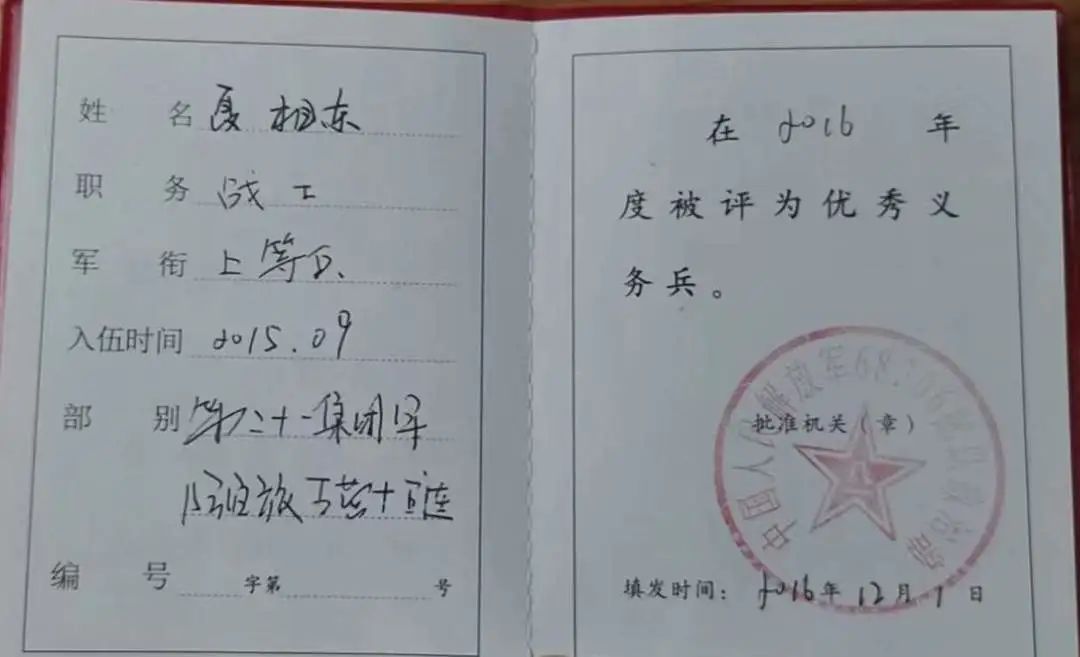 姓名 夏相东
职务 战士
军衔 上等兵
入伍时间 2015.09
部别 第二十一集团军
防空旅 营十连
编号 字第 号
在 2016 年
度被评为优秀义
务兵。
中国人民解放军68 部队政治部
批准机关(章)
填发时间: 2016年12月1日